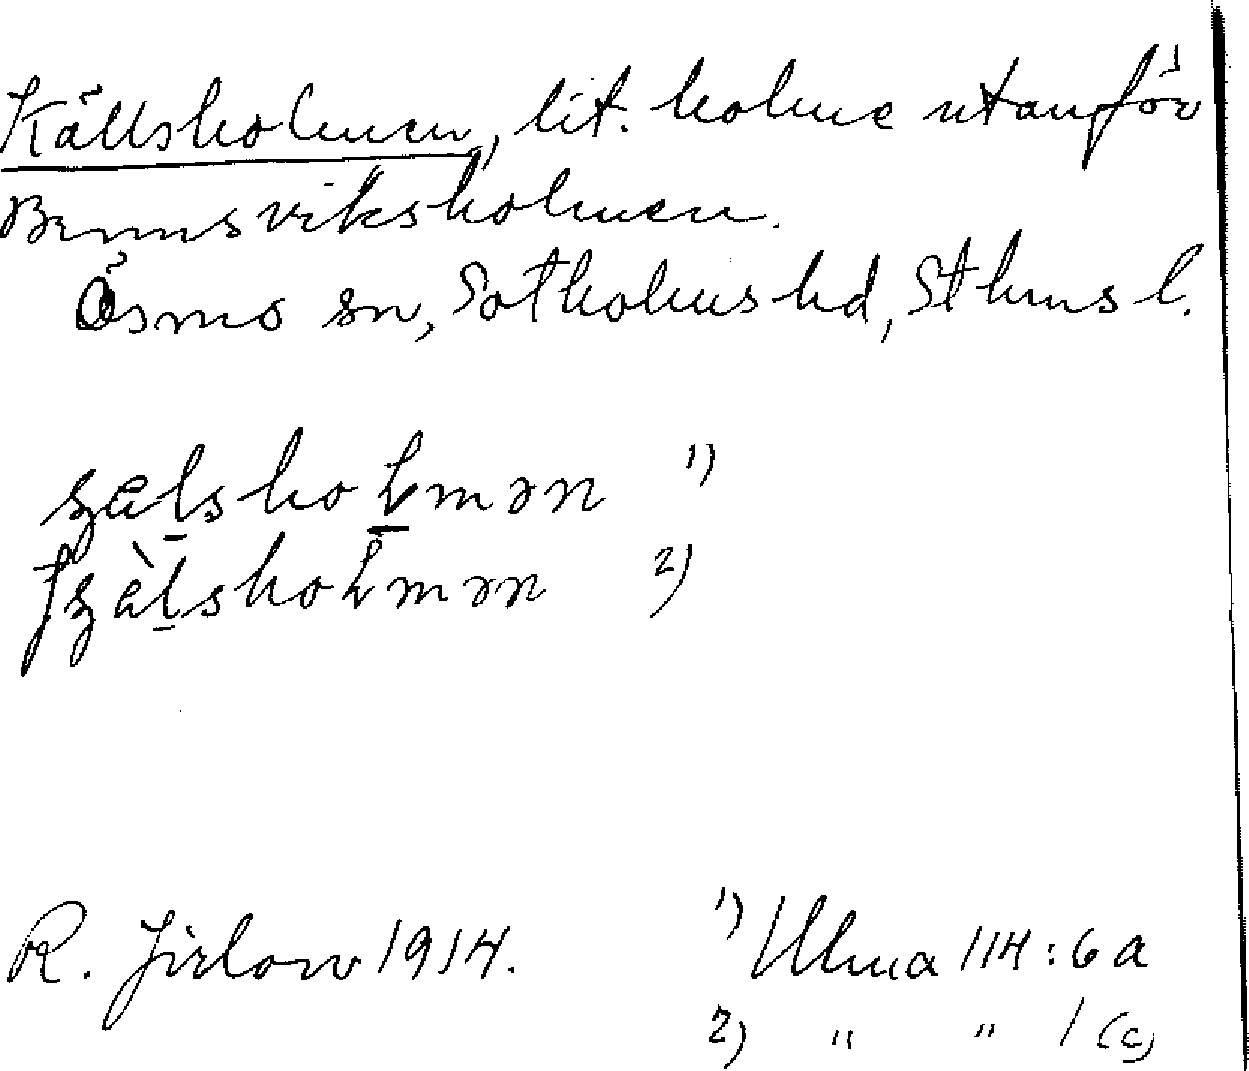 Källsholmen, lit. holme utanför
Brunnsviksholmen.
Ösmo sn, Sotholms hd, Sthms l.
ʂäḷsholmən 1)
fʂä̀ḷsholmən 2)
R. Jirlow 1914.
1) Ulma 114:6a
2) " " 1(c)